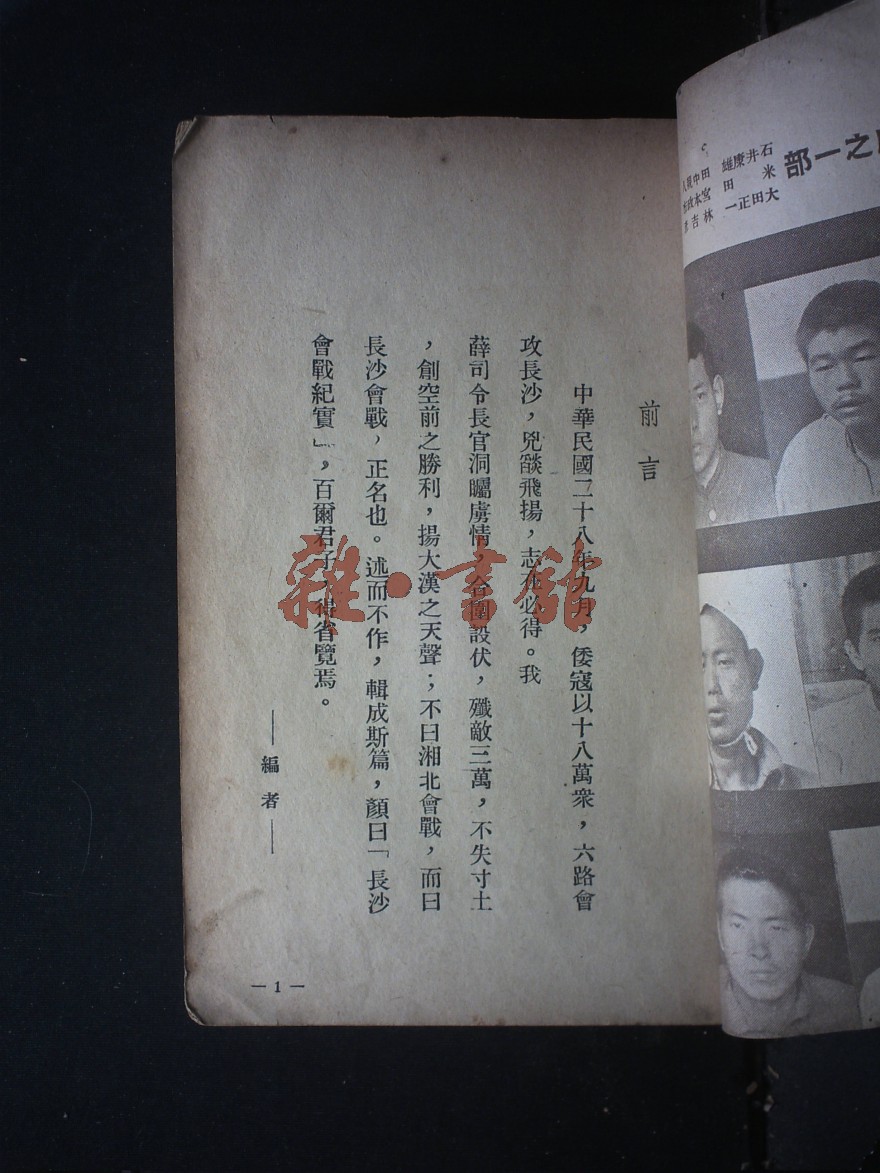 前言
中華民國二十八年九月，倭寇以十八萬衆，六路會
攻長沙，兇燄飛揚，志在必得。我
薛司令長官洞矚虜情，合圍設伏，殲敵三萬，不失寸土
，創空前之勝利，揚大漢之天聲；不曰湘北會戰，而曰
長沙會戰，正名也。述而不作，輯成斯篇，顏曰「長沙
會戰紀實」，百爾君子，得省覽焉。
——編者——
—1—
雜·書館
之一部
石井康雄
米田
大田正一
林吉